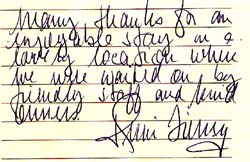 Many thanks for an
enjoyable stay in a
lovely location where
we were waited on by
friendly staff and kind
owners